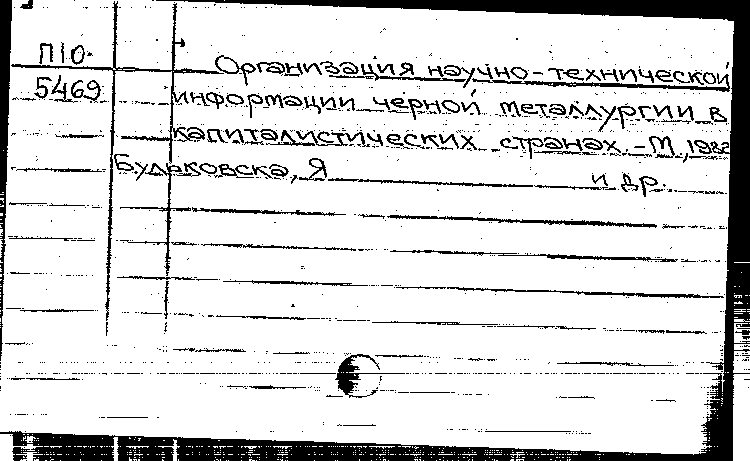 П10.
5469
Организация научно-технической
информации черной металлургии в
капиталистических странах. - М.,
Будьковска, Я и др.